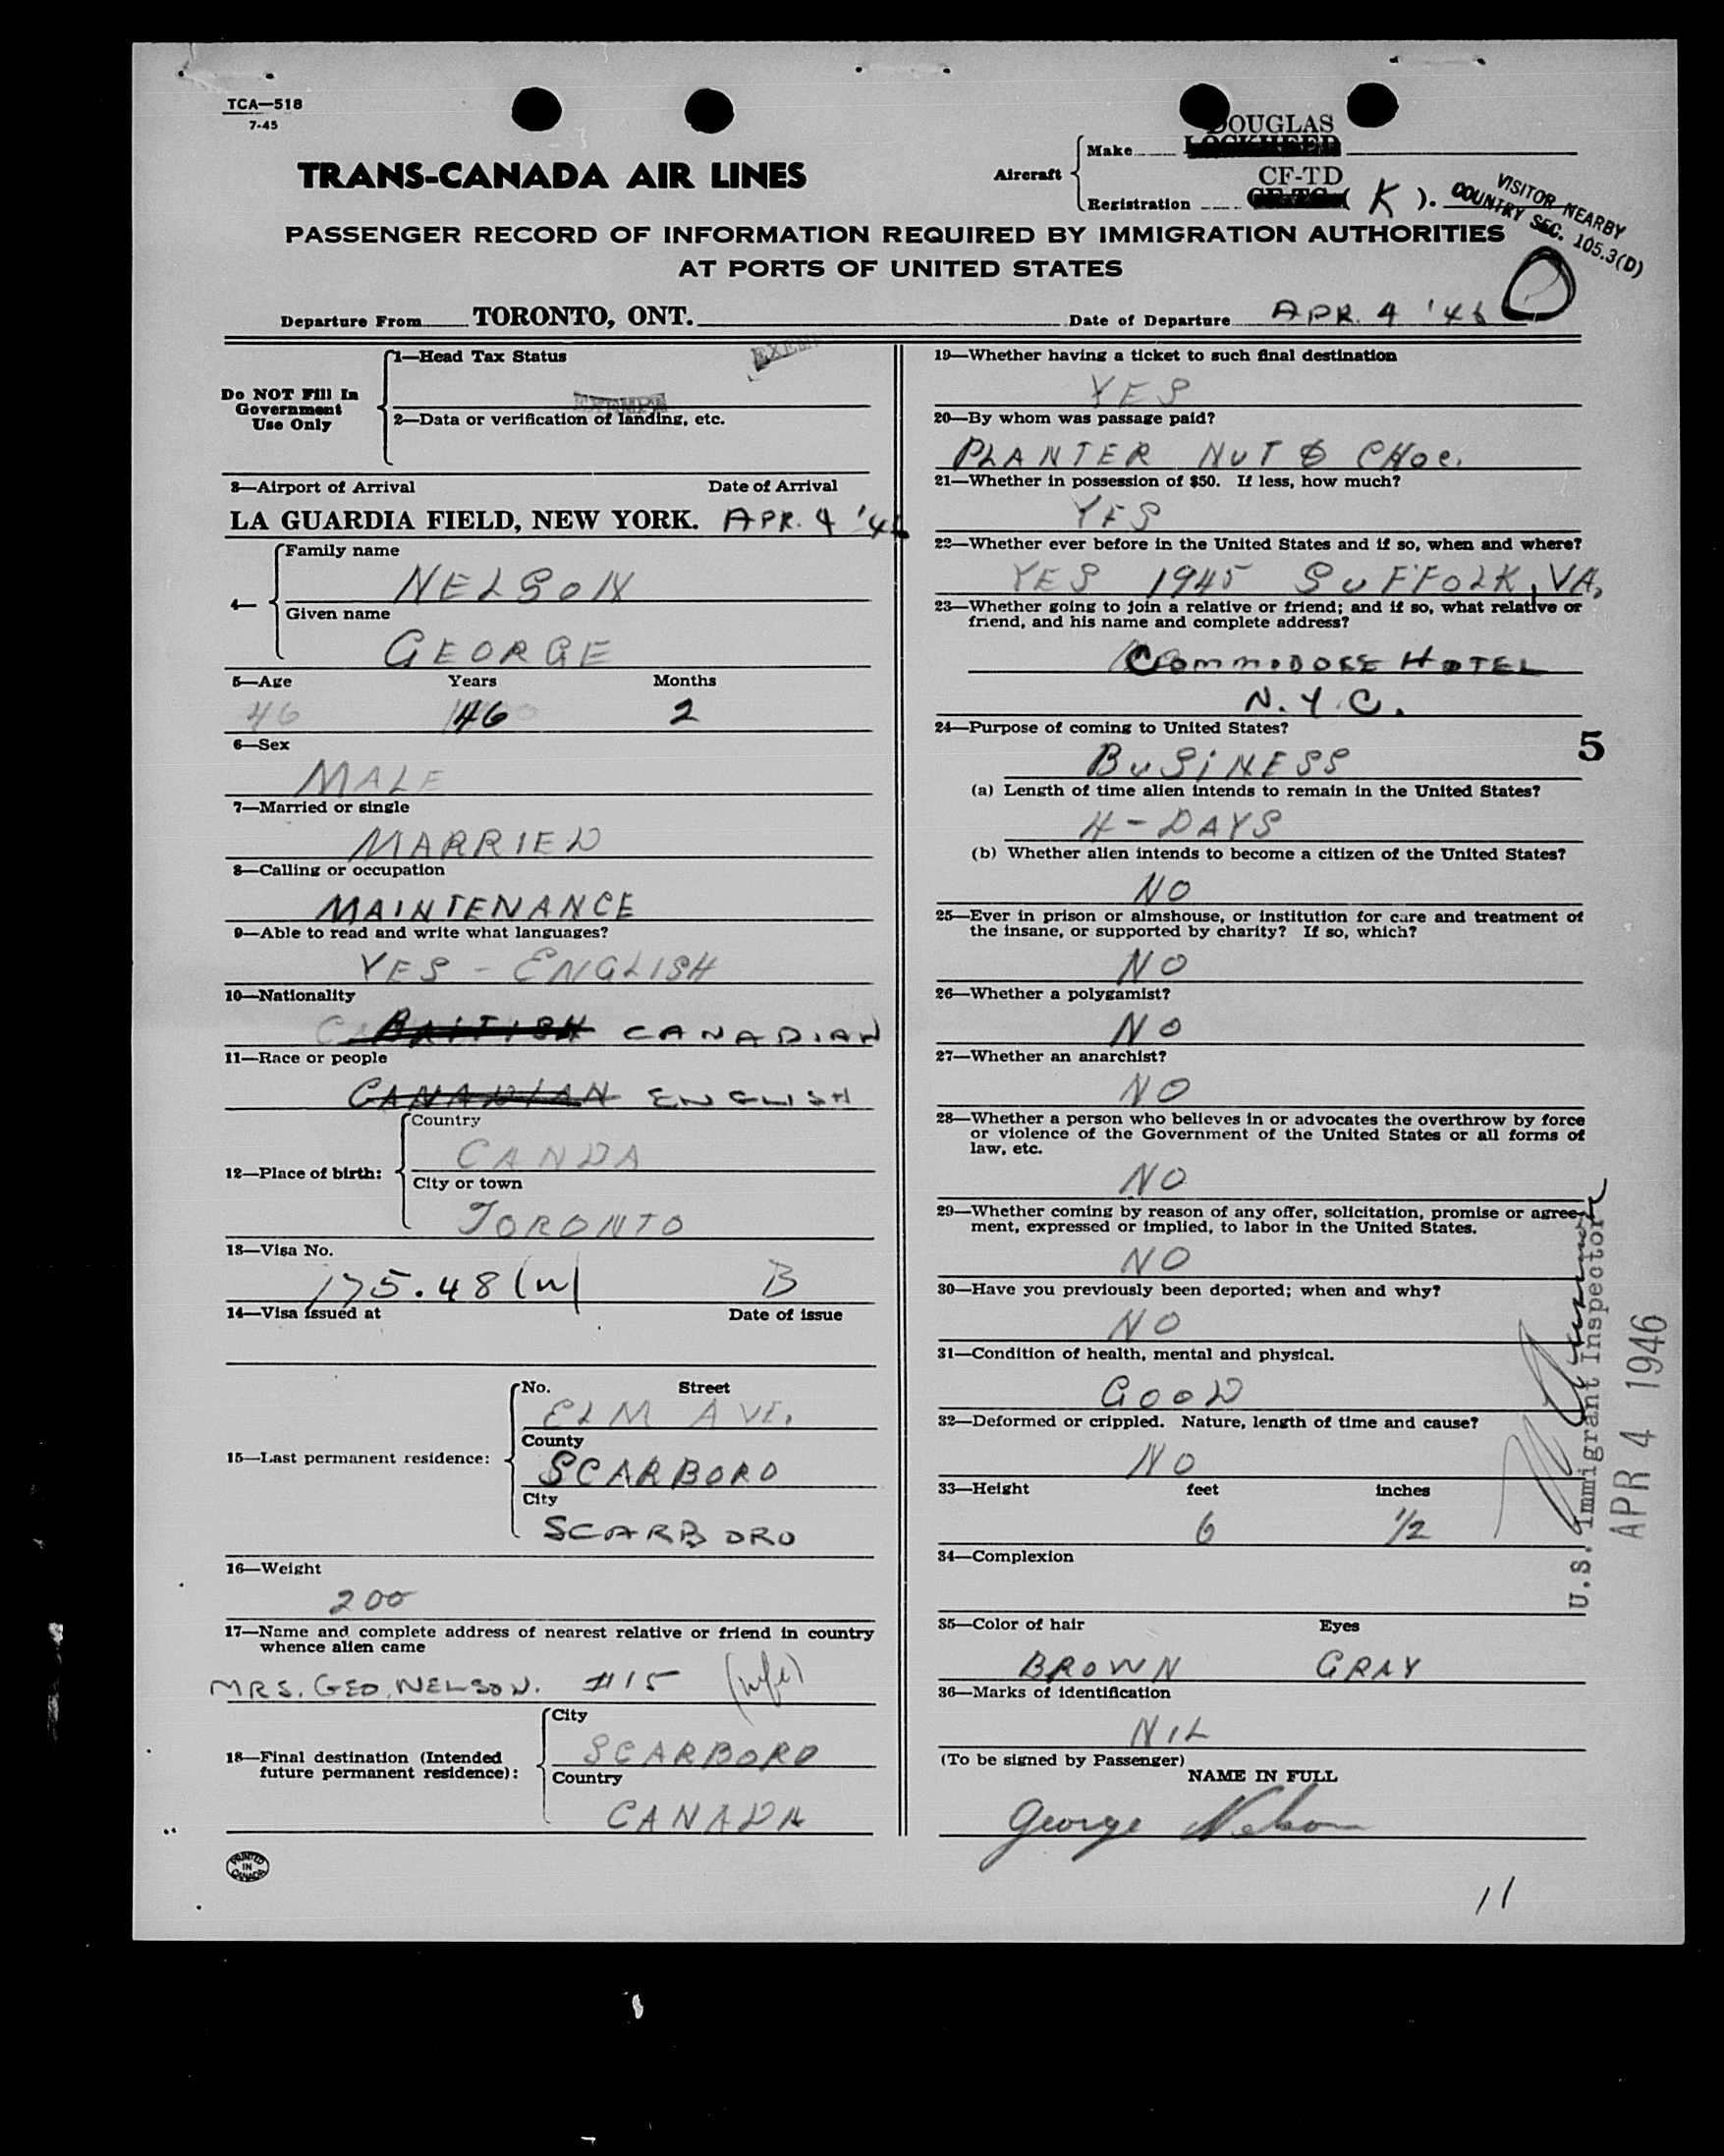 TCA—518
7-45
TRANS-CANADA AIR LINES
Aircraft
Make
DOUGLAS
LOCKHEED
Registration
CF-TD
CF-TC ( K ).
VISITOR NEARBY
COUNTRY SEC. 105.3(D)
PASSENGER RECORD OF INFORMATION REQUIRED BY IMMIGRATION AUTHORITIES
AT PORTS OF UNITED STATES
Departure From TORONTO, ONT.
Date of Departure APR. 4 '46
Do NOT Fill In
Government
Use Only
1—Head Tax Status
EXEMPT
EXEMPT
2—Data or verification of landing, etc.
3—Airport of Arrival Date of Arrival
LA GUARDIA FIELD, NEW YORK. APR. 4 '46
4—
Family name
NELSON
Given name
GEORGE
5—Age Years Months
46 46 2
6—Sex
MALE
7—Married or single
MARRIED
8—Calling or occupation
MAINTENANCE
9—Able to read and write what languages?
YES - ENGLISH
10—Nationality
BRITISH CANADIAN
11—Race or people
CANADIAN ENGLISH
12—Place of birth:
Country
CANDA
City or town
TORONTO
13—Visa No.
175.48 (w) B
14—Visa issued at Date of issue
15—Last permanent residence:
No. Street
ELM AVE.
County
SCARBORO
City
SCARBORO
16—Weight
200
17—Name and complete address of nearest relative or friend in country
whence alien came
MRS. GEO. NELSON. #15 (wife)
18—Final destination (Intended
future permanent residence):
City
SCARBORO
Country
CANADA
PRINTED
IN
CANADA
19—Whether having a ticket to such final destination
YES
20—By whom was passage paid?
PLANTER NUT & CHOC.
21—Whether in possession of $50. If less, how much?
YES
22—Whether ever before in the United States and if so, when and where?
YES 1945 SUFFOLK, VA.
23—Whether going to join a relative or friend; and if so, what relative or
friend, and his name and complete address?
COMMODORE HOTEL
N.Y.C.
24—Purpose of coming to United States?
BUSINESS
5
(a) Length of time alien intends to remain in the United States?
4 - DAYS
(b) Whether alien intends to become a citizen of the United States?
NO
25—Ever in prison or almshouse, or institution for care and treatment of
the insane, or supported by charity? If so, which?
NO
26—Whether a polygamist?
NO
27—Whether an anarchist?
NO
28—Whether a person who believes in or advocates the overthrow by force
or violence of the Government of the United States or all forms of
law, etc.
NO
29—Whether coming by reason of any offer, solicitation, promise or agree-
ment, expressed or implied, to labor in the United States.
NO
30—Have you previously been deported; when and why?
NO
31—Condition of health, mental and physical.
GOOD
32—Deformed or crippled. Nature, length of time and cause?
NO
33—Height feet inches
6 1/2
34—Complexion
35—Color of hair Eyes
BROWN GRAY
36—Marks of identification
NIL
(To be signed by Passenger)
NAME IN FULL
George Nelson
U.S. Immigrant Inspector
APR 4 1946
11